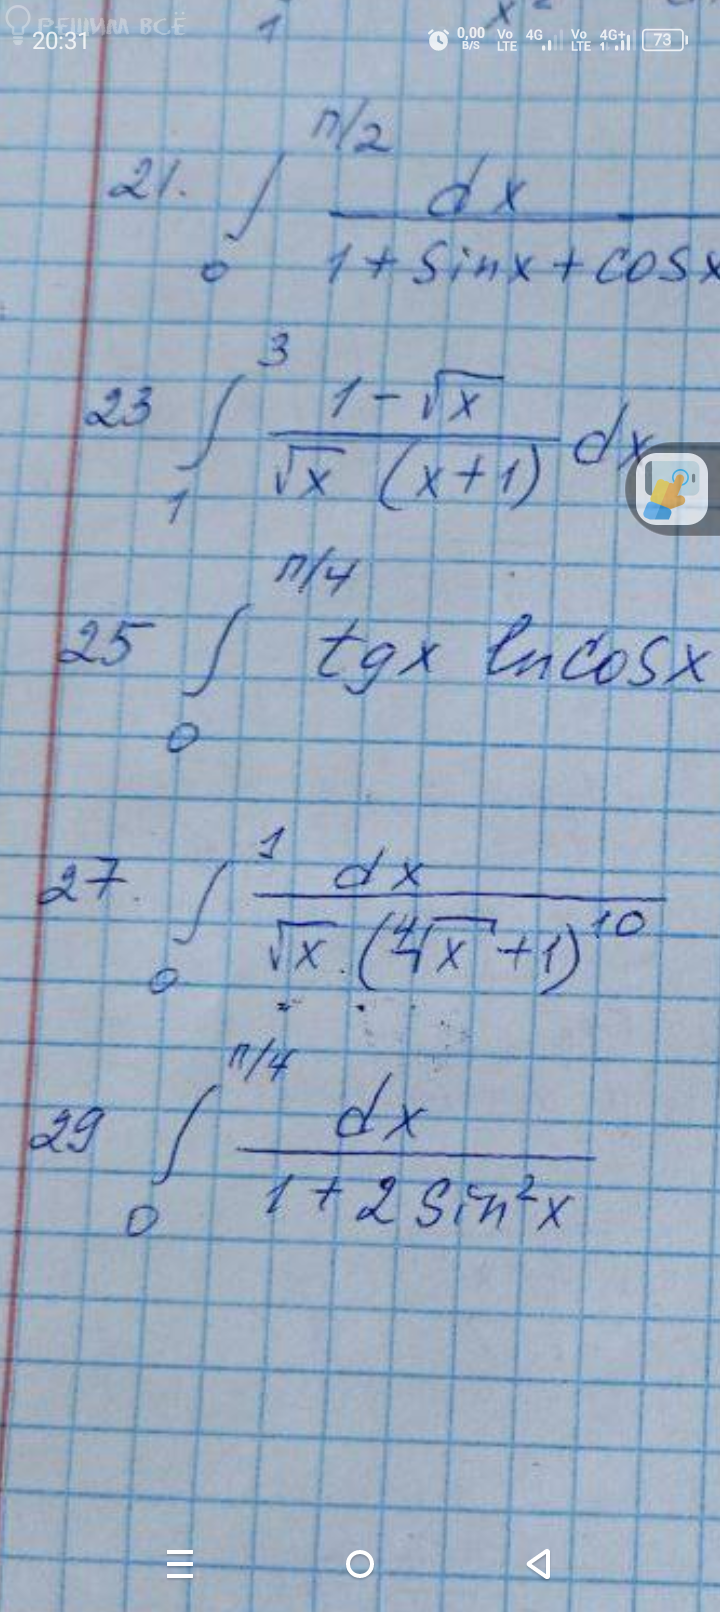 РЕШИМ ВСЁ
20:31 0,00 B/S Vo LTE 4G Vo LTE 4G+ 1 73
1 x²
21. ∫₀^{π/2} dx / (1 + sinx + cosx
23 ∫₁³ (1 - √x) / (√x (x+1)) dx
25 ∫₀^{π/4} tgx lncosx
27. ∫₀¹ dx / (√x · (∜x + 1)¹⁰)
29 ∫₀^{π/4} dx / (1 + 2 sin²x)